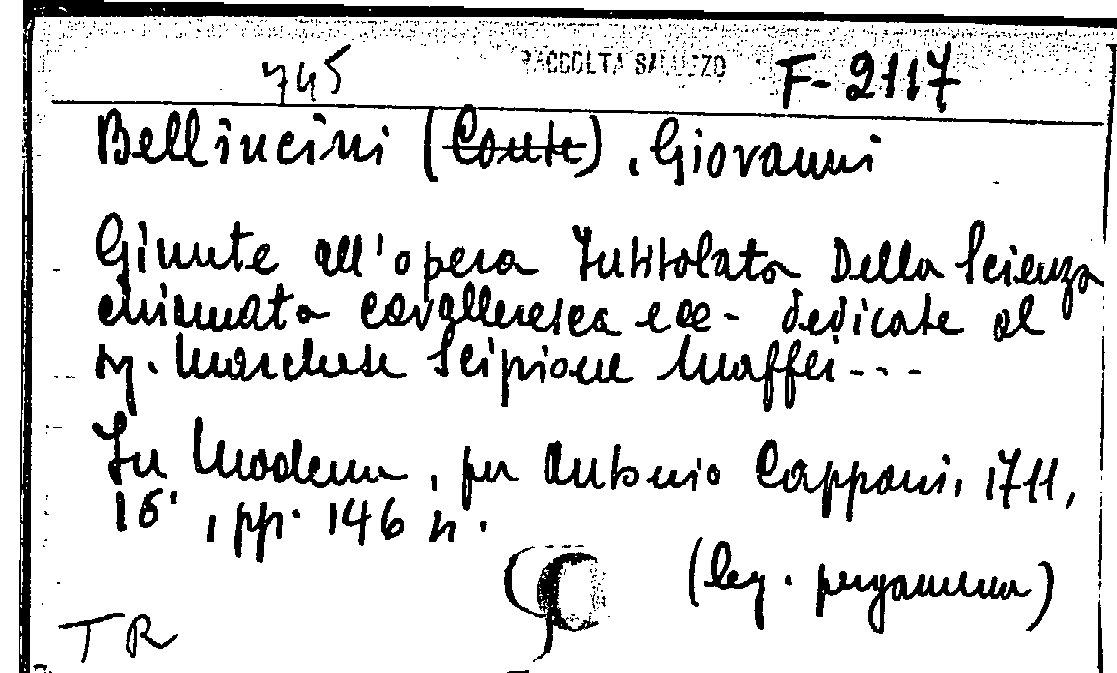 745 RACCOLTA SALUZZO F-2117
Bellincini (Conte), Giovanni
Giunte all'opera Intitolata Della Scienza
chiamata cavalleresca ecc- dedicate al
sig. Marchese Scipione Maffei---
In Modena, per Antonio Capponi, 1711,
16°, pp. 146 n.
(leg. pergamena)
TR